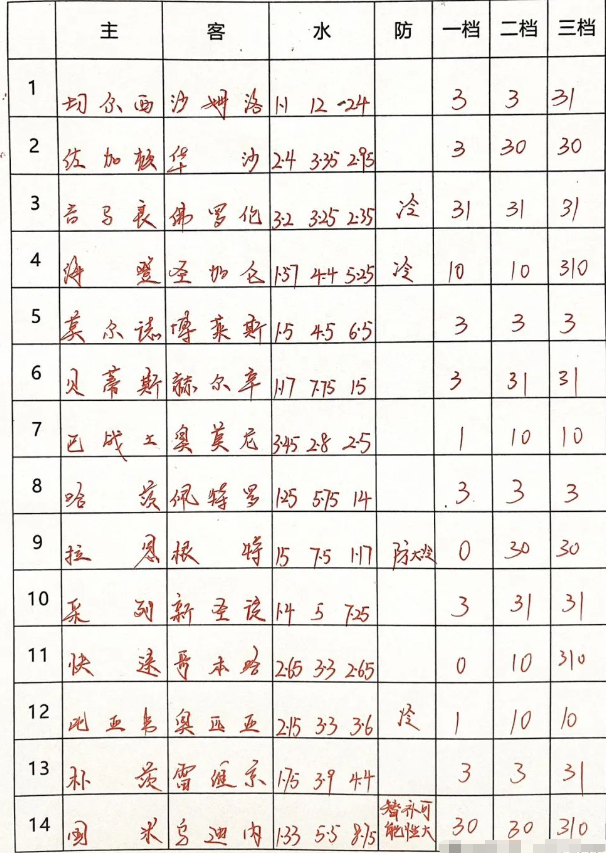 主 客 水 防 一档 二档 三档
1 切尔西 沙姆洛 1·1 12 24 3 3 31
2 佐加顿 华沙 2·4 3·35 2·95 3 30 30
3 哥马表 佛罗伦 3·2 3·25 2·35 冷 31 31 31
4 海登 圣加仑 1·57 4·4 5·25 冷 10 10 310
5 莫尔诺 博莱斯 1·5 4·5 6·5 3 3 3
6 贝蒂斯 赫尔辛 1·17 7·75 15 3 31 31
7 巴战士 奥莫尼 3·45 2·8 2·5 1 10 10
8 哈茨 佩特罗 1·25 5·75 14 3 3 3
9 拉恩 根特 15 7·5 1·17 防大冷 0 30 30
10 采列 新圣徒 1·4 5 7·25 3 31 31
11 快速 哥本哈 2·65 3·3 2·65 0 10 310
12 比亚韦 奥匹亚 2·15 3·3 3·6 冷 1 10 10
13 朴茨 雷维京 1·75 3·9 4·4 3 3 31
14 图 乌迪内 1·33 5·5 8·75 替补可
能性大 30 30 310